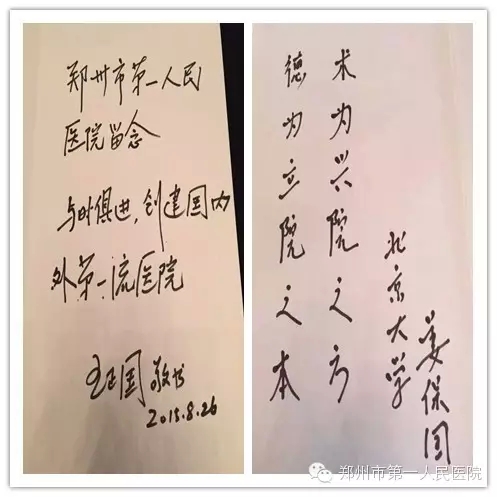 郑州市第一人民
医院留念
与时俱进,创建国内
外第一流医院
王正国 敬书
2015.8.26
德为立院之本
术为兴院之方
北京大学
姜保国
郑州市第一人民医院